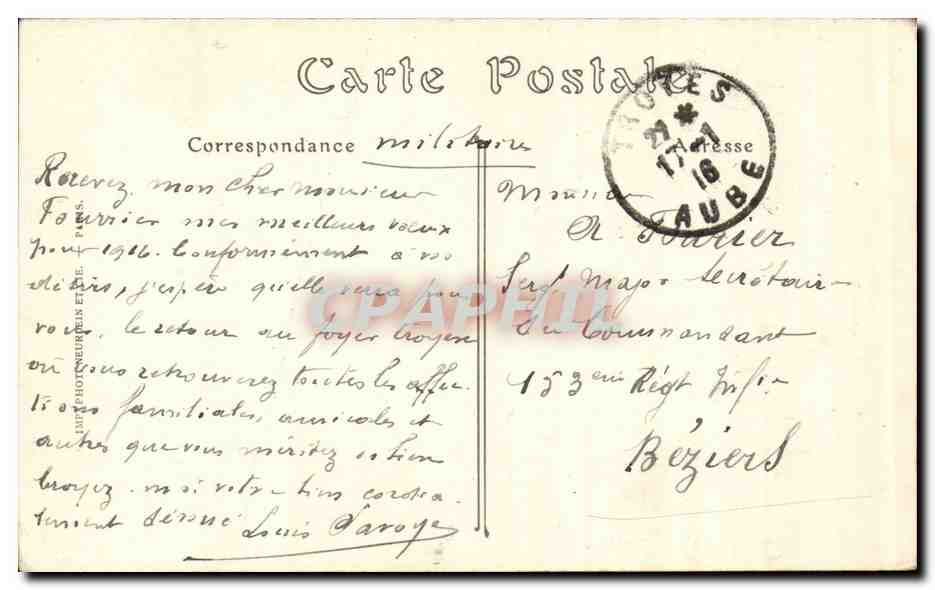 Carte Postale
Correspondance militaire
Adresse
TROYES
21 *
17 - 1
16
AUBE
Recevez mon cher monsieur
Fourrier mes meilleurs vœux
pour 1916. Conformément à vos
désirs, j'espère qu'elle verra pour
vous, le retour au foyer troyen
où vous retrouverez toutes les affec
tions familiales, amicales et
autres que vous méritez si bien
Croyez moi votre bien cordia
lement dévoué
Louis
Monsieur
R. Fourier
Serg Major Secrétaire
du Commandant
153eme Régt Infie
Béziers
IMP. PHOT. NEURDEIN ET CIE. PARIS.
CPAPHIL